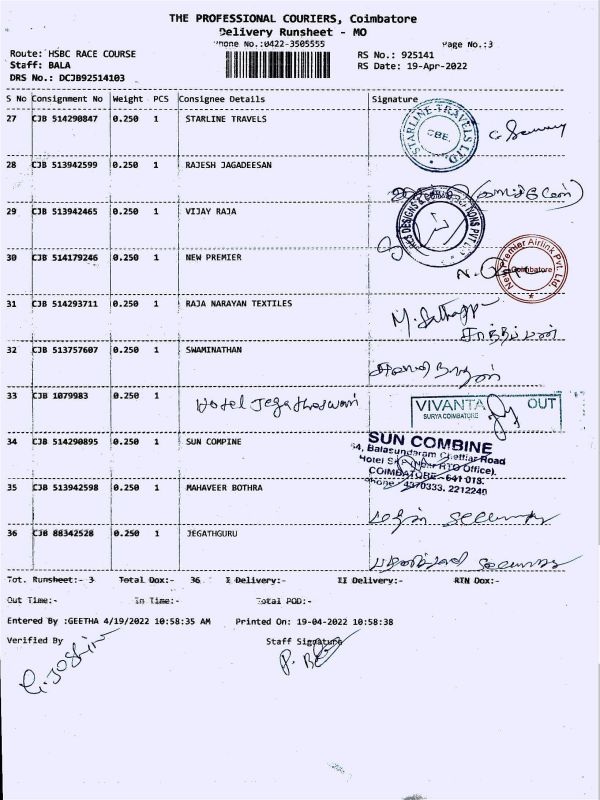 THE PROFESSIONAL COURIERS, Coimbatore
Delivery Runsheet - MO
Phone No.:0422-3505555
Page No.:3
Route: HSBC RACE COURSE
RS No.: 925141
Staff: BALA
RS Date: 19-Apr-2022
DRS No.: DCJB92514103
S No Consignment No Weight PCS Consignee Details Signature
27 CJB 514290847 0.250 1 STARLINE TRAVELS
STARLINE TRAVELS LTD CBE.
28 CJB 513942599 0.250 1 RAJESH JAGADEESAN
29 CJB 513942465 0.250 1 VIJAY RAJA
DESIGNS PVT LTD
30 CJB 514179246 0.250 1 NEW PREMIER
New Premier Airlink Pvt. Ltd. Coimbatore
31 CJB 514293711 0.250 1 RAJA NARAYAN TEXTILES
32 CJB 513757607 0.250 1 SWAMINATHAN
33 CJB 1079983 0.250 1 Hotel Jegatheswari
VIVANTA OUT
SURYA COIMBATORE
34 CJB 514290895 0.250 1 SUN COMPINE
SUN COMBINE
54, Balasundaram Chettiar Road
(Near RTO Office),
COIMBATORE - 641 018.
Phone : 4370333, 2212240
35 CJB 513942598 0.250 1 MAHAVEER BOTHRA
security
36 CJB 88342528 0.250 1 JEGATHGURU
security
Tot. Runsheet:- 3 Total Dox:- 36 I Delivery:- II Delivery:- RTN Dox:-
Out Time:- In Time:- Total POD:-
Entered By :GEETHA 4/19/2022 10:58:35 AM Printed On: 19-04-2022 10:58:38
Verified By Staff Signature